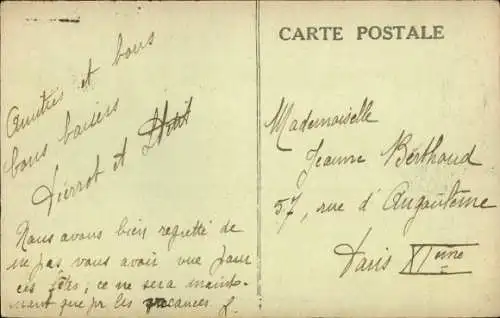 Amitiés et bons
bons baisers
Pierrot et
Nous avons bien regretté de
ne pas vous avoir vue pour
ces fêtes; ce ne sera mainte-
nant que pr les vacances.
CARTE POSTALE
Mademoiselle
Jeanne Berthoud
57, rue d'Angoulême
Paris XIème